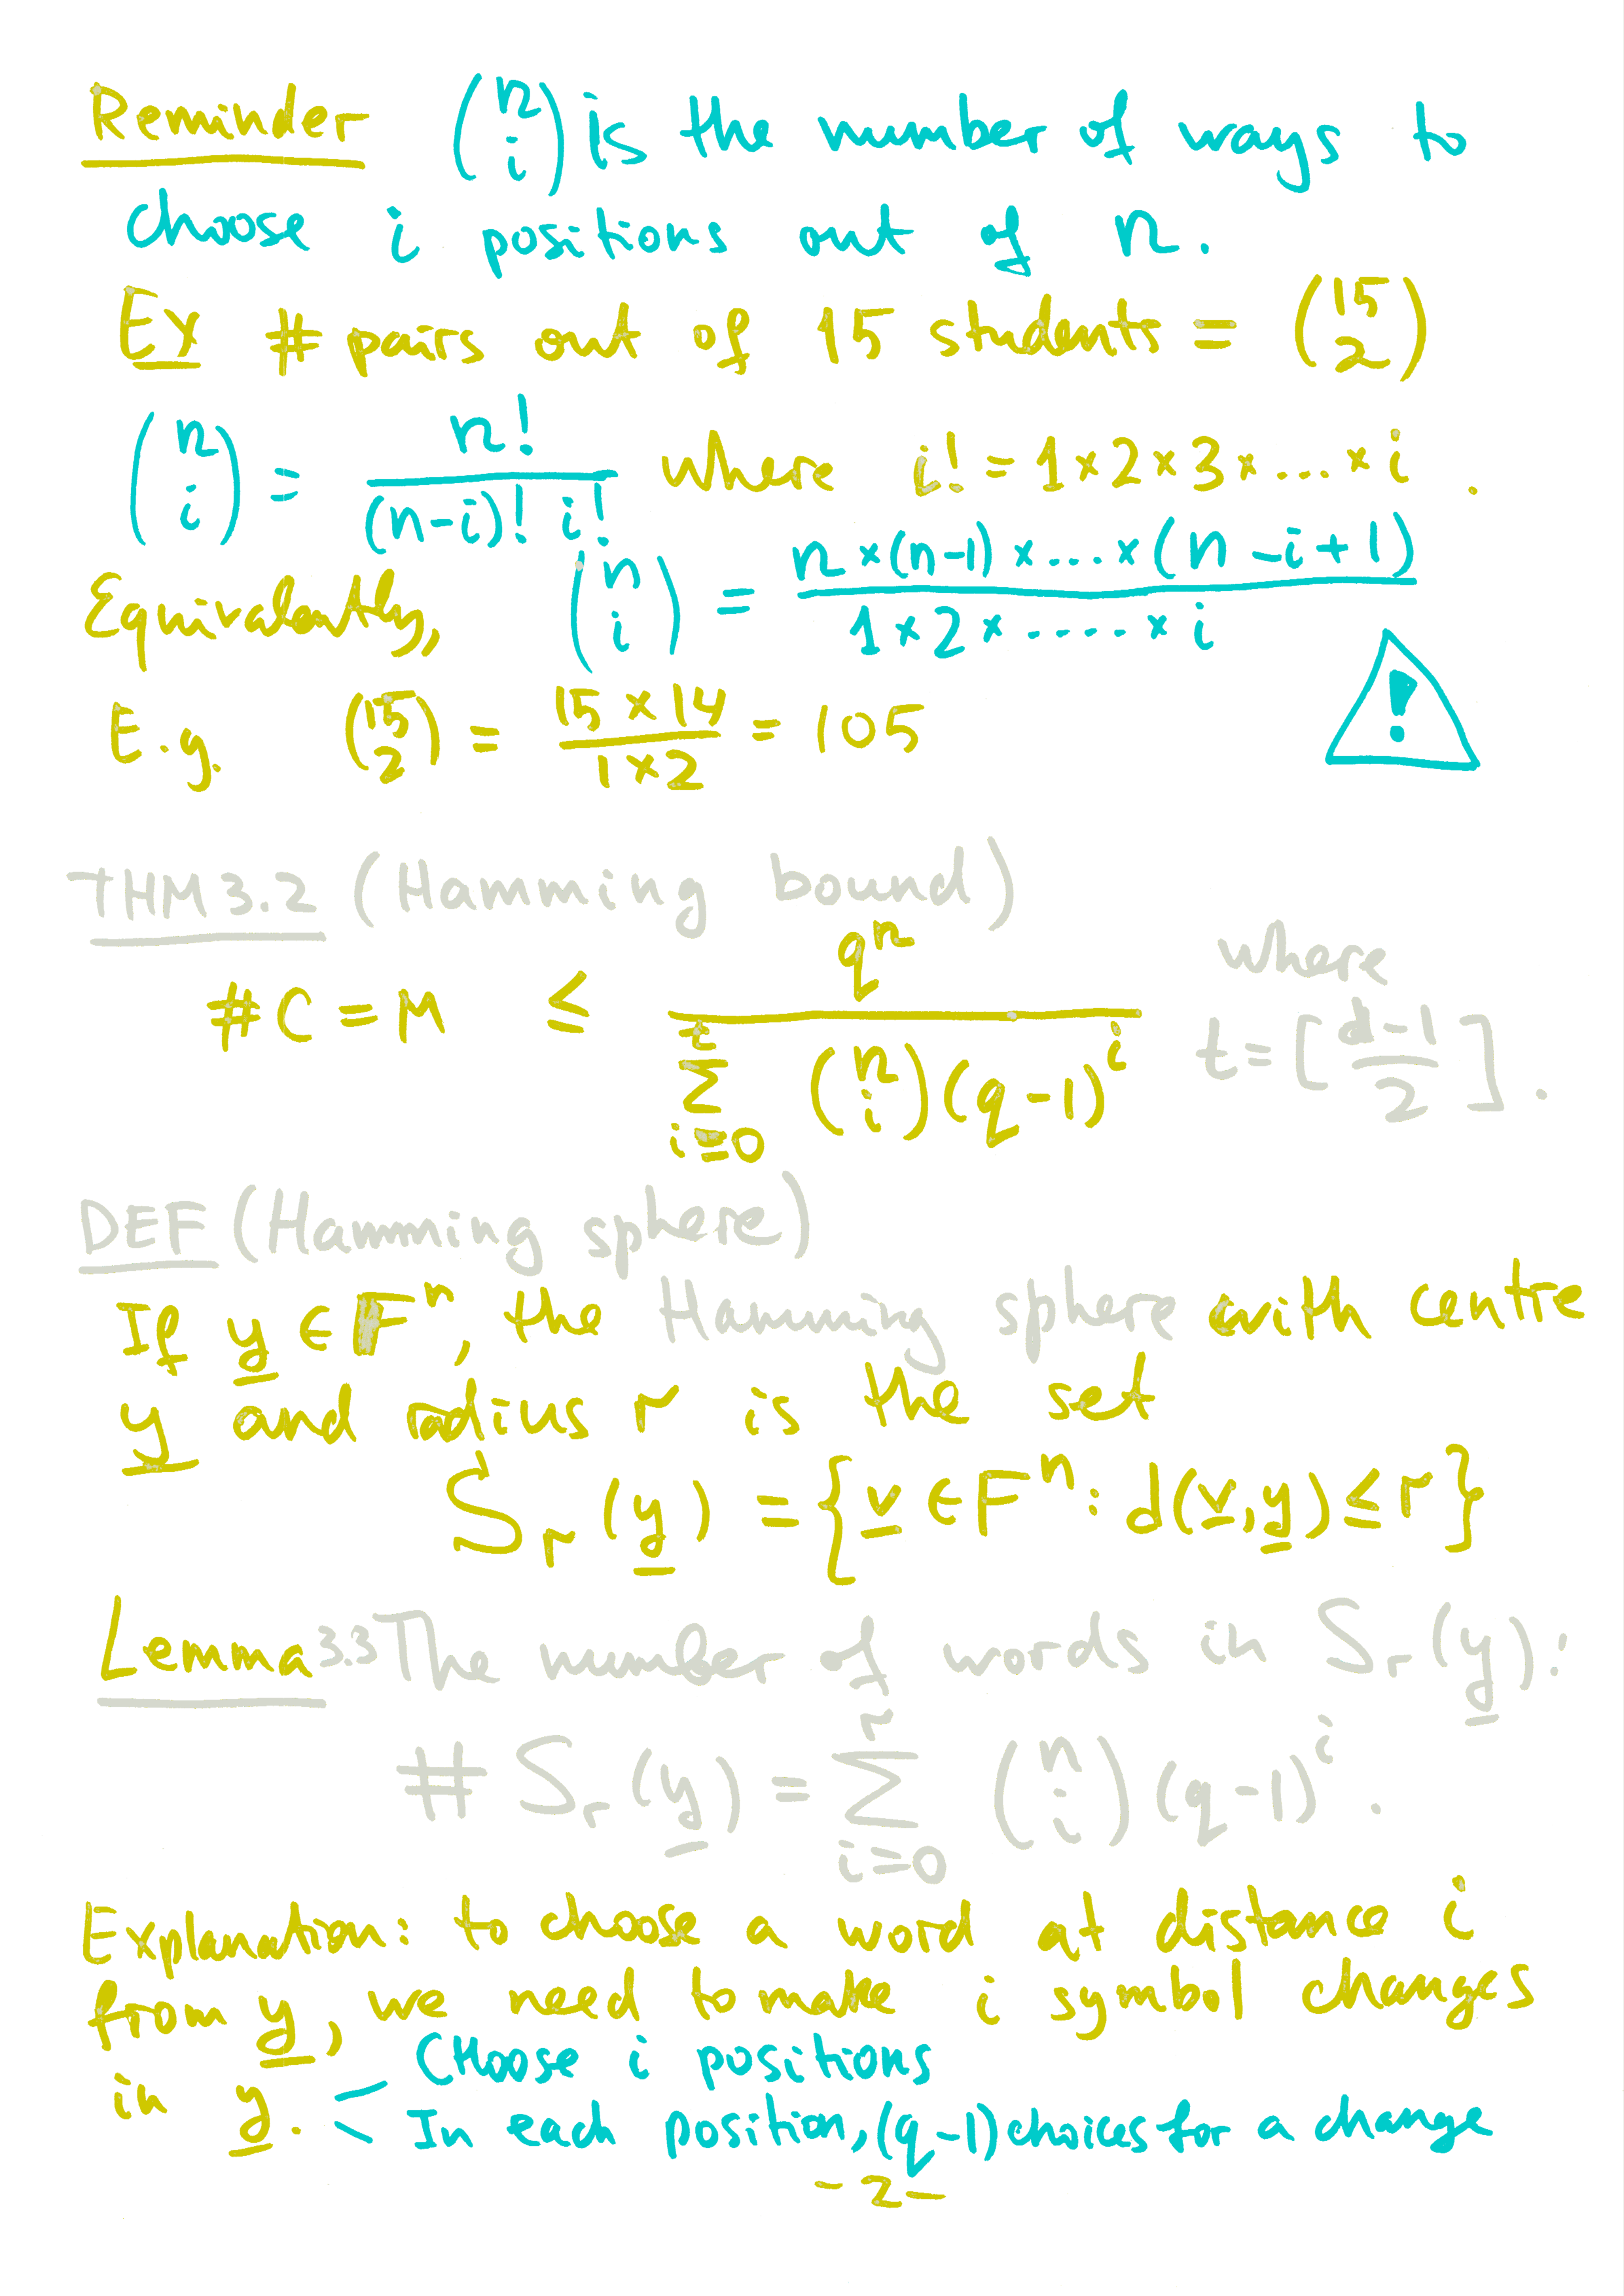 Reminder (n i) is the number of ways to
choose i positions out of n.
Ex # pairs out of 15 students = (15 2)
(n i) = n! / (n-i)! i! where i! = 1×2×3×...×i .
Equivalently, (n i) = n×(n-1)×...×(n-i+1) / 1×2×.....×i
!
E.g. (15 2) = 15×14 / 1×2 = 105
THM 3.2 (Hamming bound)
#C = M ≤ qⁿ / ∑_{i=0}^{t} (n i)(q-1)^i where t = [d-1 / 2].
DEF (Hamming sphere)
If y ∈ Fⁿ, the Hamming sphere with centre
y and radius r is the set
S_r(y) = {v ∈ Fⁿ : d(v,y) ≤ r}
Lemma 3.3 The number of words in S_r(y):
# S_r(y) = ∑_{i=0}^{r} (n i)(q-1)^i .
Explanation: to choose a word at distance i
from y, we need to make i symbol changes
in y. < Choose i positions
In each position, (q-1) choices for a change
- 2 -